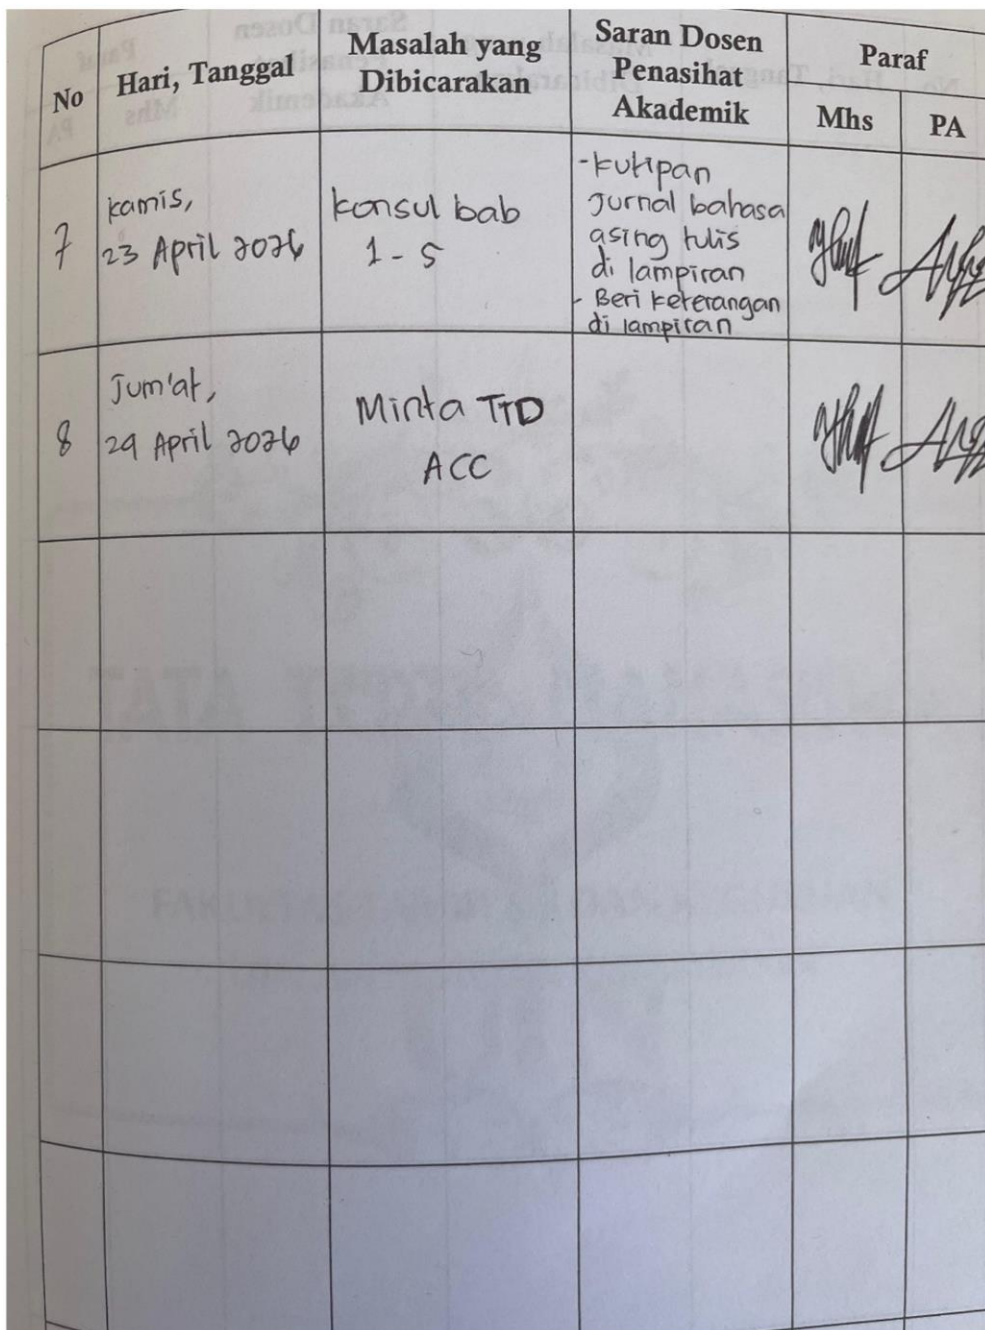 No
Hari, Tanggal
Masalah yang
Dibicarakan
Saran Dosen
Penasihat
Akademik
Paraf
Mhs
PA
7
kamis,
23 April 2026
konsul bab
1 - 5
- kutipan
Jurnal bahasa
asing tulis
di lampiran
- Beri keterangan
di lampiran
8
Jum'at,
24 April 2026
Minta TTD
ACC